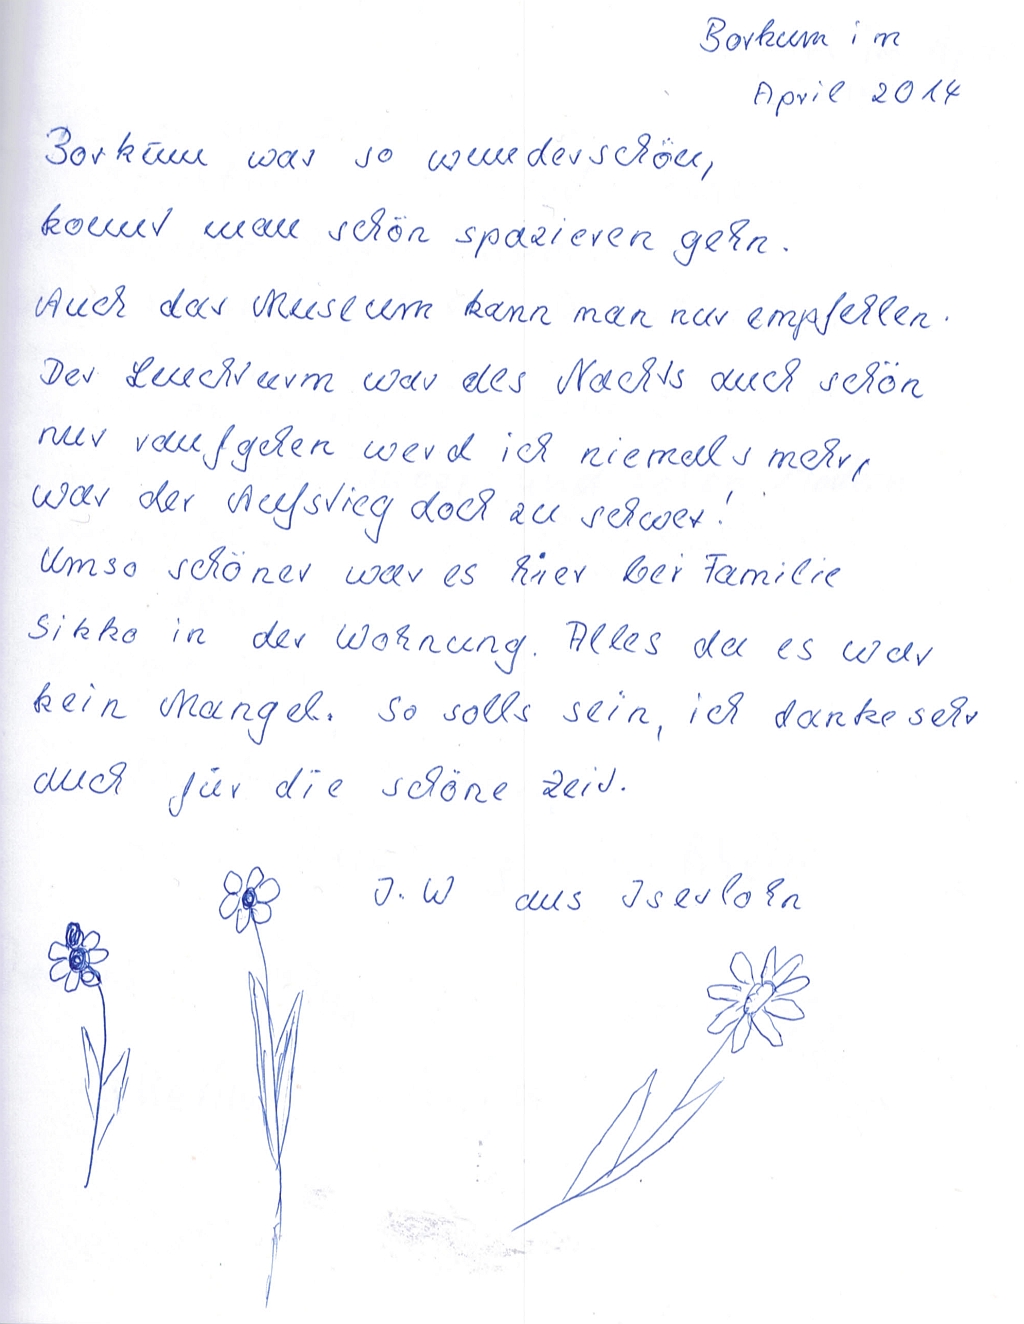 Borkum im
April 2014
Borkum war so wunderschön,
konnt man schön spazieren gehn.
Auch das Museum kann man nur empfehlen.
Der Leuchturm war des Nachts auch schön
nur raufgehen werd ich niemals mehr,
war der Aufstieg doch zu schwer!
Umso schöner war es hier bei Familie
Sikko in der Wohnung. Alles da es war
kein Mangel. So solls sein, ich danke sehr
auch für die schöne Zeit.
I. W aus Iserlohn